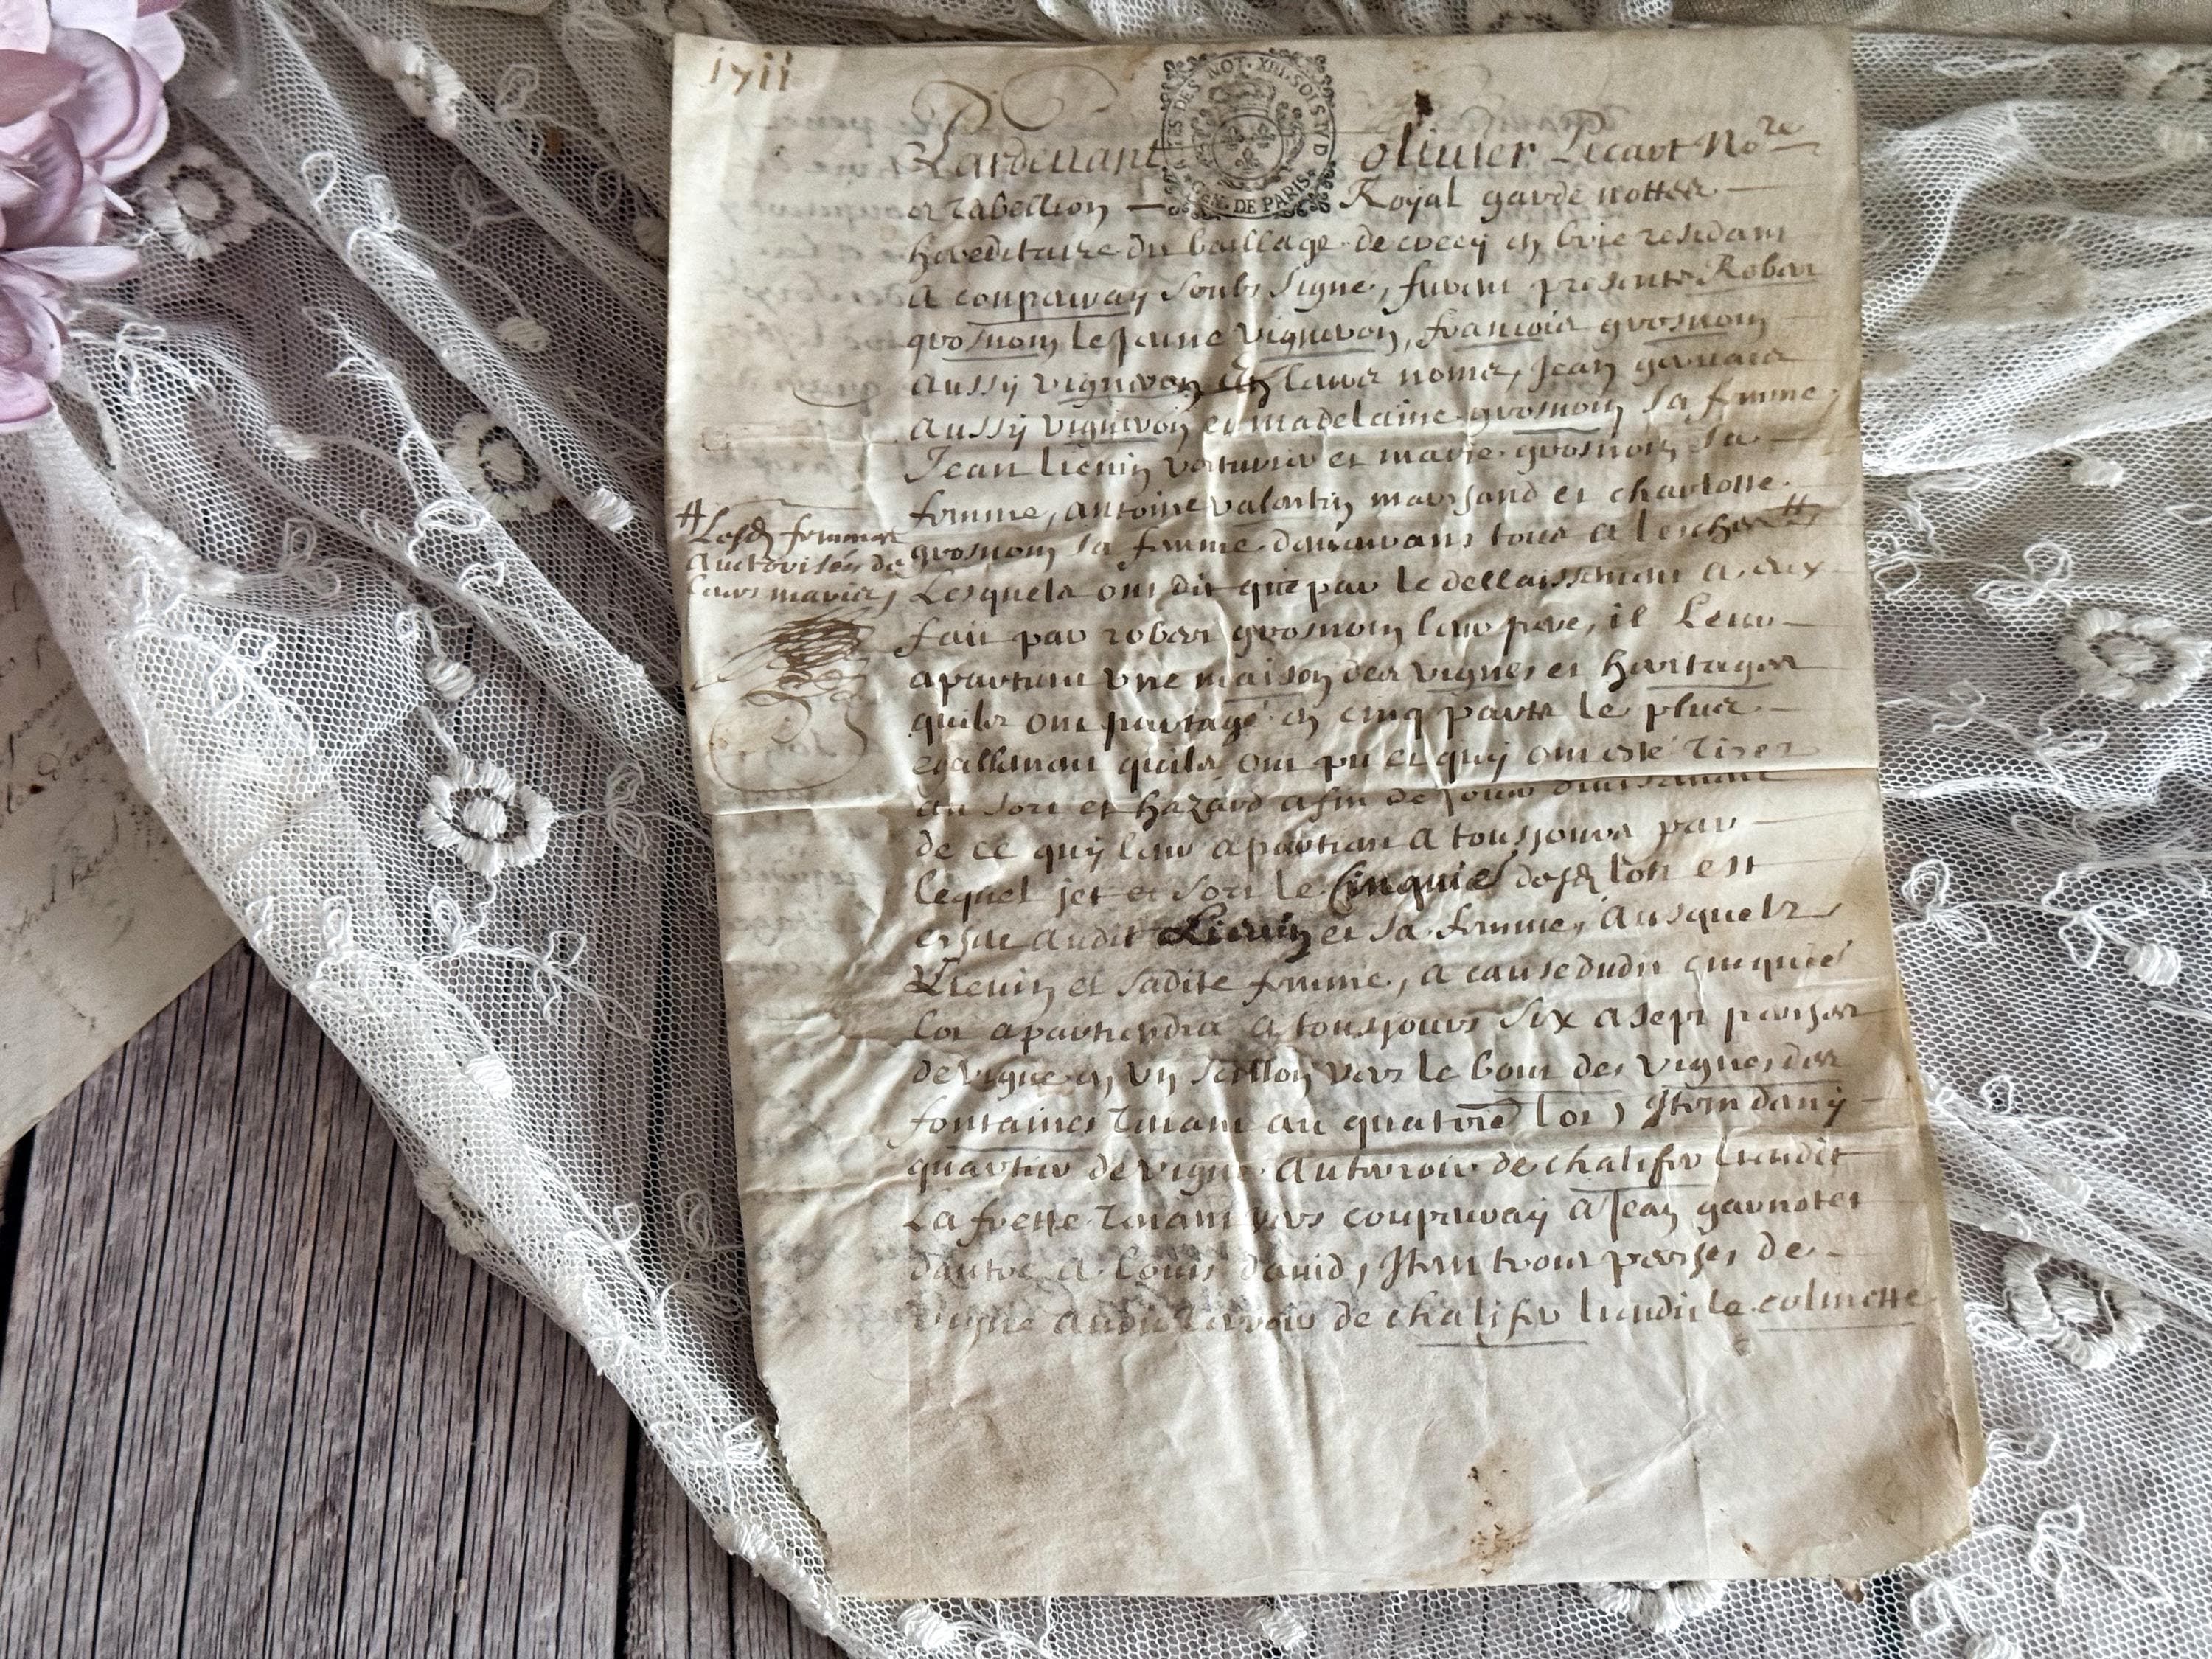 1711
ACTES DES NOT. XIII. SOLS IV D
GEN. DE PARIS
Pardevant olivier Licart No.re
et Tabellion Royal garde nottes
hereditaire du baillage de crecy en brie residant
a coupvray soubs signé, furent presents Robert
grosnom le jeune vigneron, francois grosnom
aussy vigneron leurs noms, Jean
aussy vigneron et madelaine grosnom sa femme,
Jean Lienin voiturier et marie grosnom sa
femme, antoine valentin marchand et charlotte
grosnom sa femme demeurans tous a lesches #
# Lesd femmes
auctorisées de
leurs maries,
Lesquels ont dit que par le dellaissement a eux
fait par robert grosnom leur pere, il leur
apartient une maison des vignes et heritages
quils ont partagé en cinq parts le plus
egallement quils ont pu et quy ont esté tirer
au sort et hazard afin de jouir divisement
de ce quy leur apartient a tousjours par
lequel jet et sort le cinquie desd lots est
eschu audit Lienin et sa femme, ausquels
Lienin et sadite femme, a cause dudit cinquie
lot apartiendra a tousjours six a sept perches
de vigne en un seillon vers le bout des vignes des
fontaines tenant au quatrie lot, Item demy
quartier de vigne au teroir de chalifer lieudit
La frette tenant vers coupvray a Jean garnotet
dautre a Louis david, Item trois perches de
vigne audit teroir de chalifer lieudit le colinette